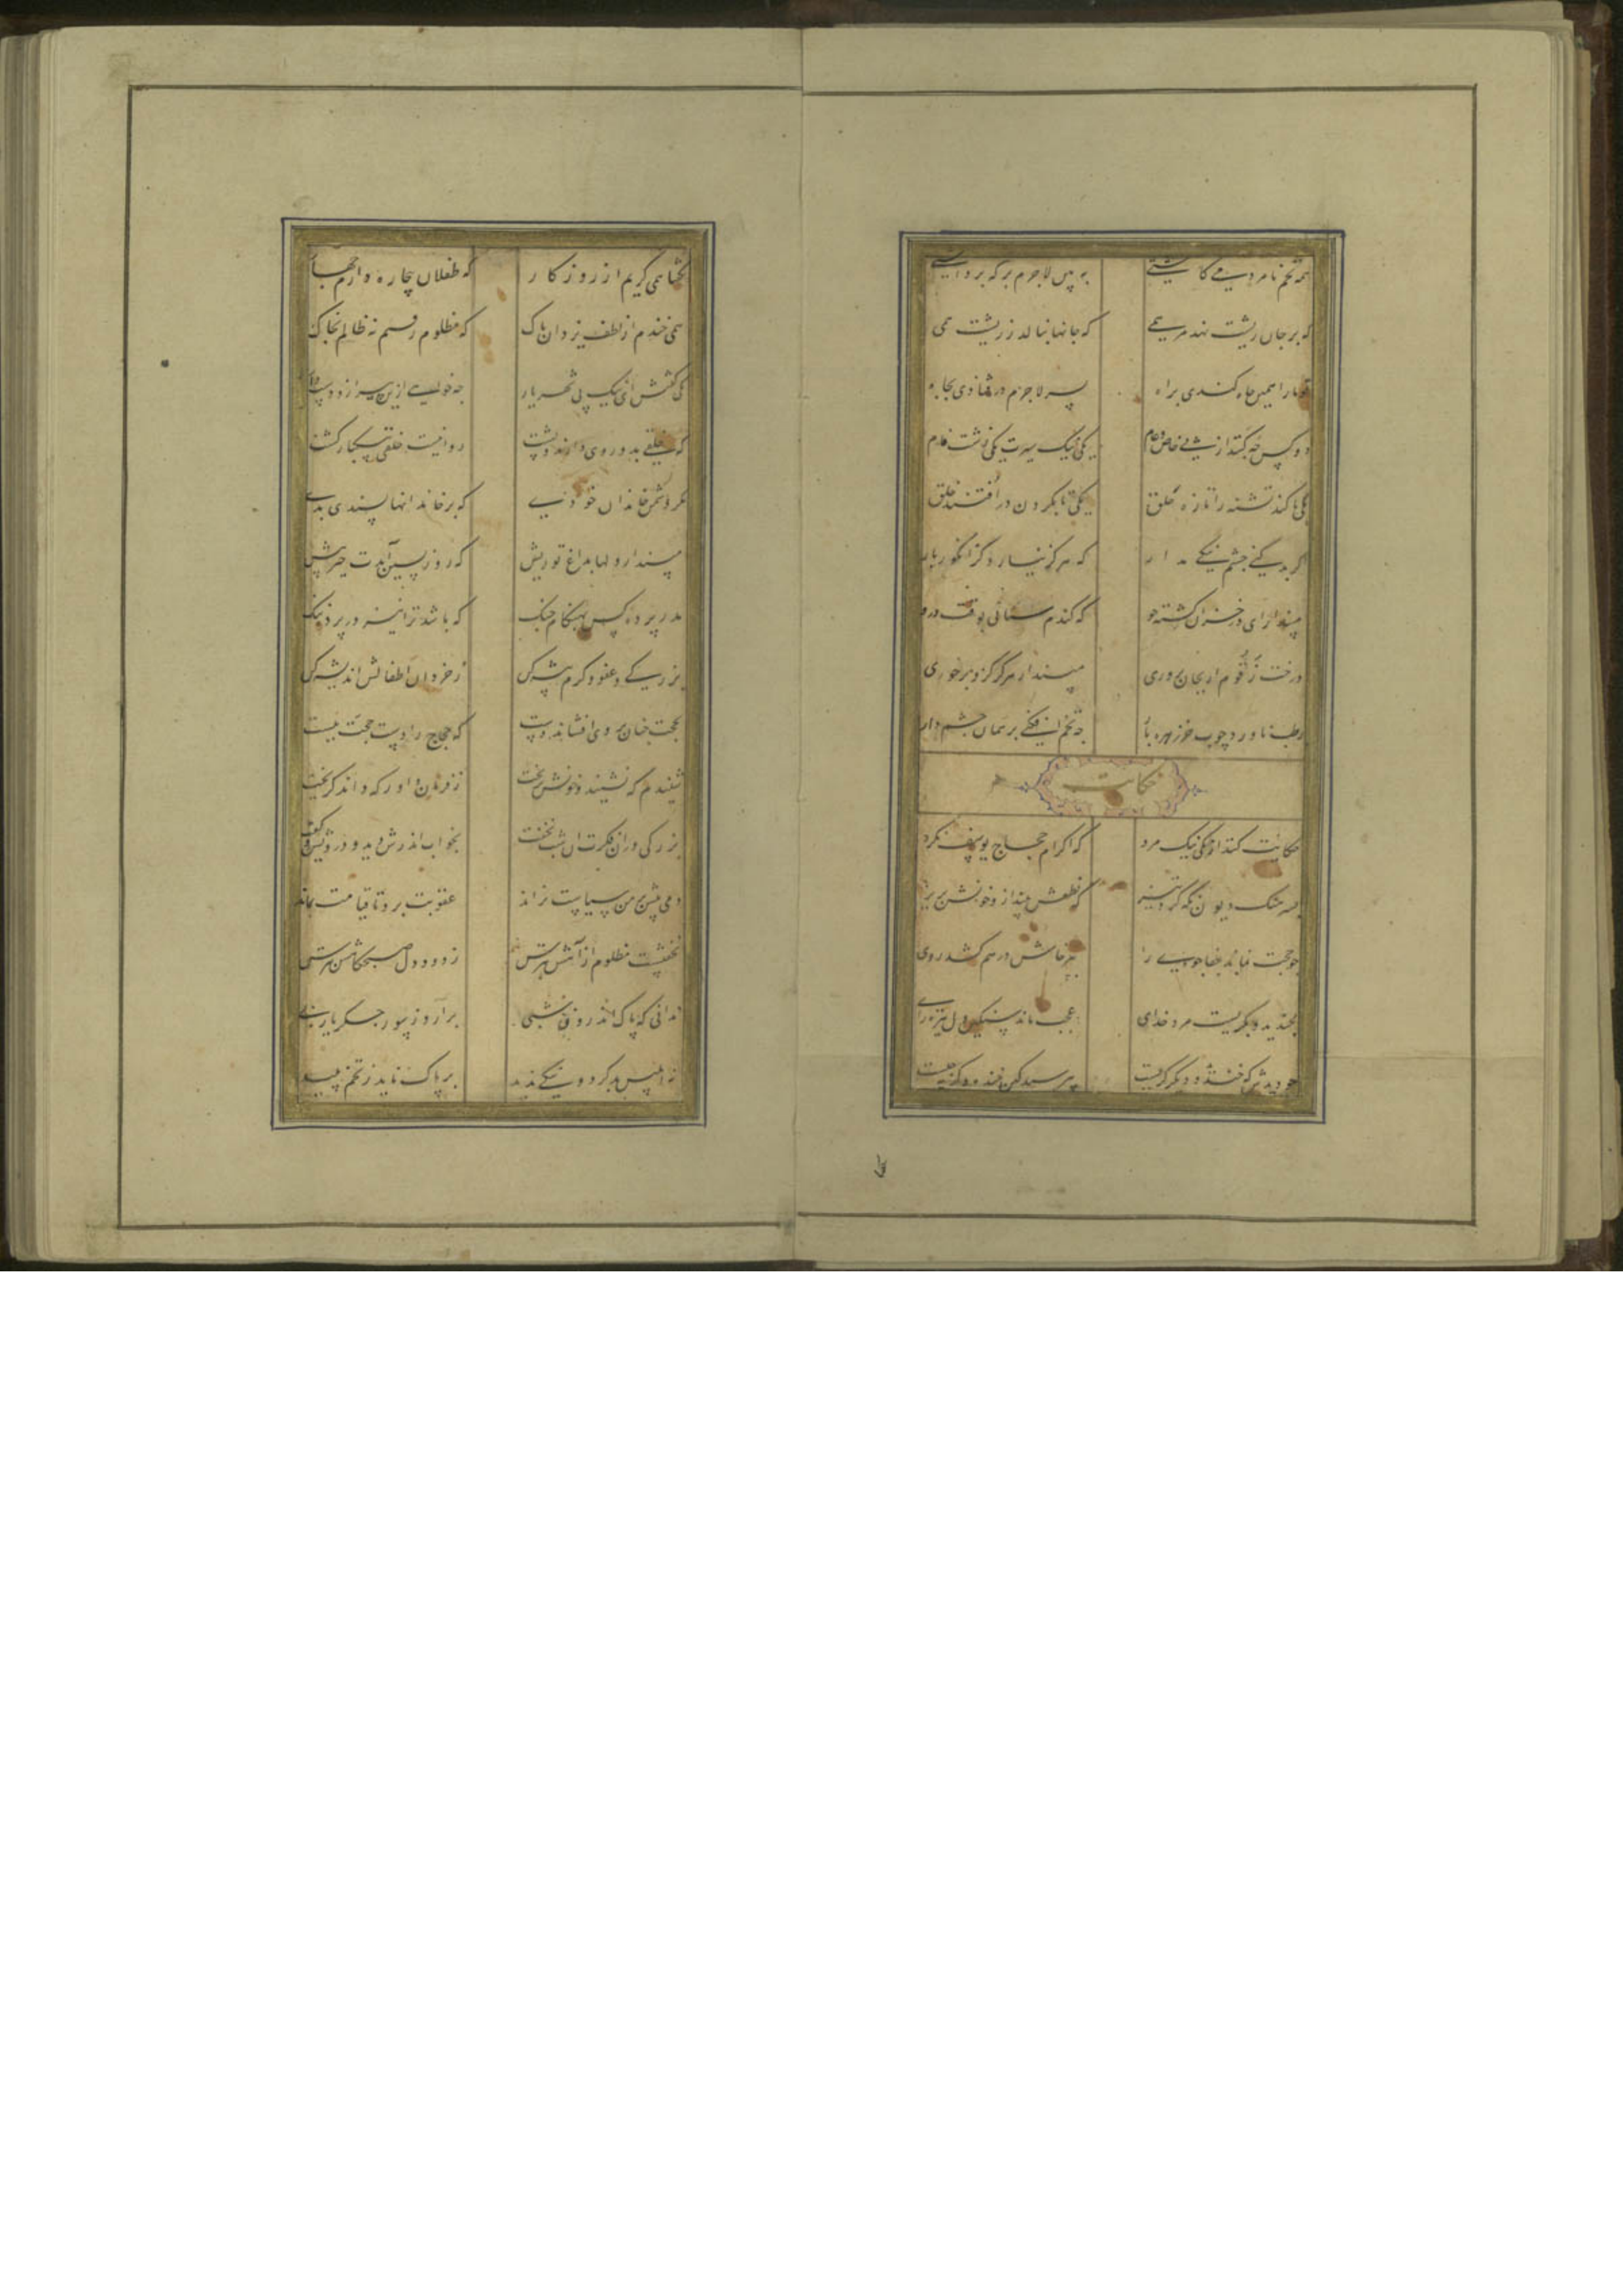 همه تخم نامردمی کاشتی ببین لاجرم بر که برداشتی
که بر جان ریشت نهد مرهمی که جانها بنالد ز ریشت همی
تو ما را همی چاه کندی براه بسر لاجرم در فتادی بچاه
دو کس چه کنند از پی خاص و عام یکی نیک سیرت یکی زشت نام
یکی تا کند تشنه را تازه حلق یکی تا بگردن در افتند خلق
اگر بد کنی چشم نیکی مدار که هرگز نیارد گز انگور بار
مپندار ای در خزان کشته جو که گندم ستانی بوقت درو
درخت زقوم ار بجان پروری مپندار هرگز کزو بر خوری
رطب ناورد چوب خرزهره بار چه تخم افکنی بر همان چشم دار
حکایت
حکایت کنند از یکی نیک مرد که اکرام حجاج یوسف نکرد
بسرهنگ دیوان نگه کرد تیز که نطعش بینداز و خونش بریز
چو حجت نماند جفاجوی را بپرخاش در هم کشد روی را
بخندید و بگریست مرد خدای عجب ماند سنگین دل تیره رای
چو دیدش که خندید و دیگر گریست بپرسید کین خنده و گریه چیست
بگفتا همی گریم از روزگار که طفلان بیچاره دارم چهار
همی خندم از لطف یزدان پاک که مظلوم رفتم نه ظالم بخاک
یکی گفتش ای نیک پی شهریار چه خواهی ازین پیر ازو دست دار
که خلقی بدو روی دارند و پشت روا نیست خلقی بیکبار کشت
مگر دشمن خاندان خودی که بر خاندانها پسندی بدی
مپندار و دلها بداغ تو ریش که روز پسین آیدت خیر پیش
مدر پرده کس بهنگام جنگ که باشد ترا نیز در پرده ننگ
بزرگی و عفو و کرم پیشه کن ز خردان اطفالش اندیشه کن
بحجت چنان بروی افشاند دست که حجاج را دست حجت ببست
شنیدم که نشنید و خونش بریخت ز فرمان داور که داند گریخت
بزرگی در آن فکرت آن شب بخفت بخواب اندرش دید درویش و گفت
دمی پیش بر من سیاست نراند عقوبت برو تا قیامت بماند
نخفتست مظلوم از آهش بترس ز دود دل صبحگاهش بترس
ندانی که پاک اندرونی شبی برآرد ز سوز جگر یاربی
نه ابلیس بد کرد و نیکی ندید بر پاک ناید ز تخم پلید